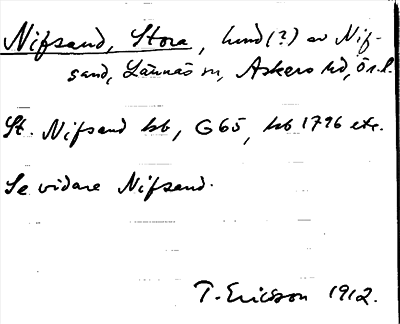 Nifsand, Stora, hmd(?) av Nif-
sand, Lännäs sn, Askers hd, Ör.l.
St. Nifsand hb, G65, hb 1796 etc.
Se vidare Nifsand.
T. Ericsson 1912.